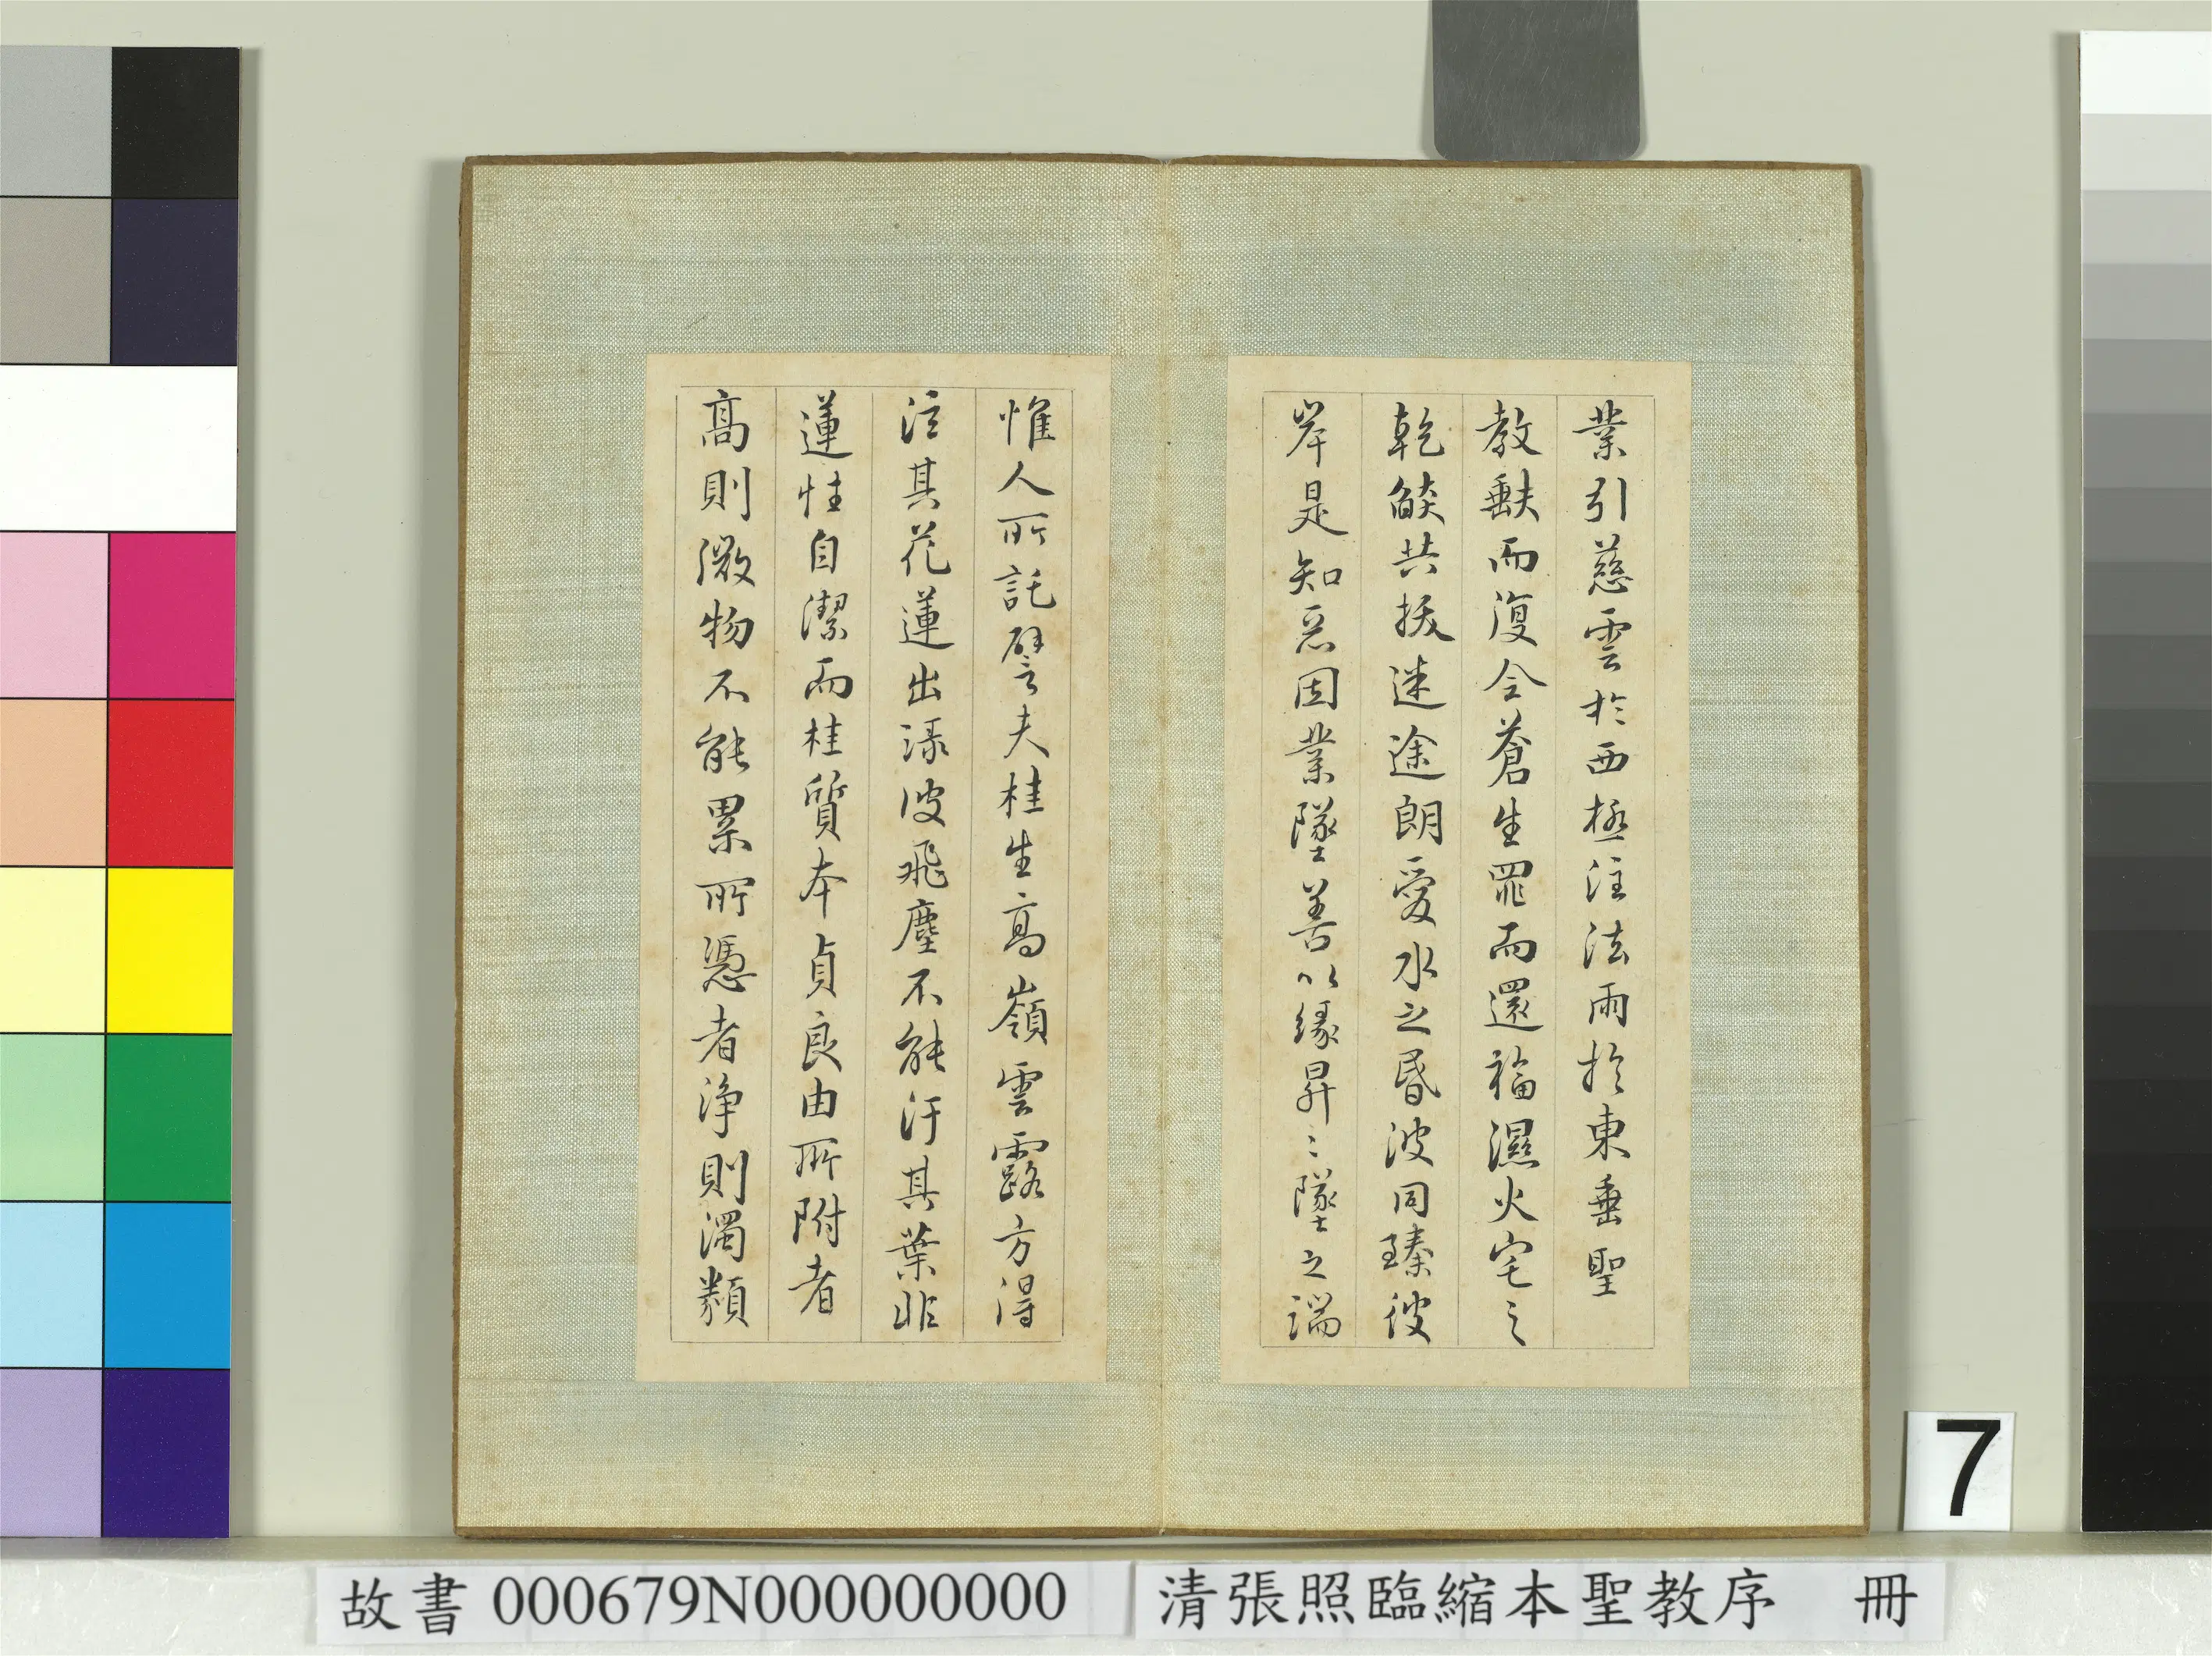 業引慈雲於西極注法雨於東垂聖
教𡙇而復全蒼生罪而還福濕火宅之
乾燄共拔迷途朗愛水之昏波同臻彼
岸是知惡因業墜善以緣昇〻墜之端
惟人所託譬夫桂生高嶺雲露方得
泫其花蓮出淥波飛塵不能汙其葉非
蓮性自潔而桂質本貞良由所附者
高則微物不能累所憑者淨則濁類
7
故書 000679N000000000
清張照臨縮本聖教序 冊